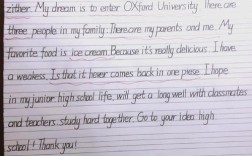 zither. My dream is to enter OXford University There are
three people in my family. There are my parents and me. My
favorite food is ice cream. Because it's really delicious. I have
a weakess. Is that it hever comes back in one piese. I hope
in my junior high school life, will get a long well with classmates
and teachers. study hard together. Go to your idea high
school! Thank you!